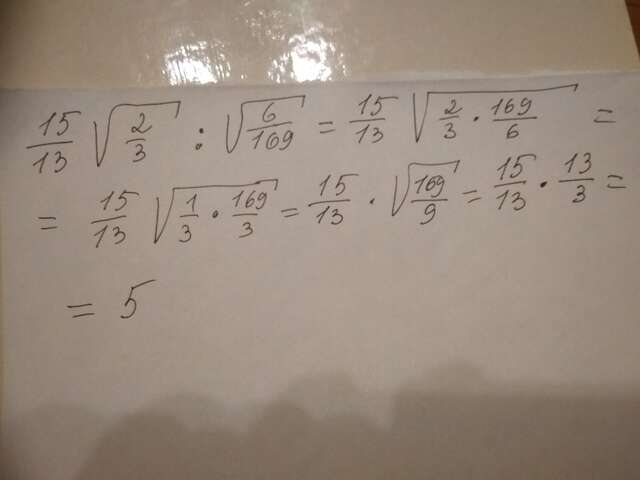 15/13 √(2/3) : √(6/169) = 15/13 √(2/3 · 169/6) =
= 15/13 √(1/3 · 169/3) = 15/13 · √(169/9) = 15/13 · 13/3 =
= 5